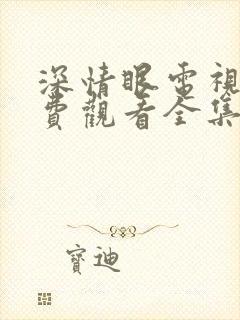 深情眼電視
費觀看全集
寶迪